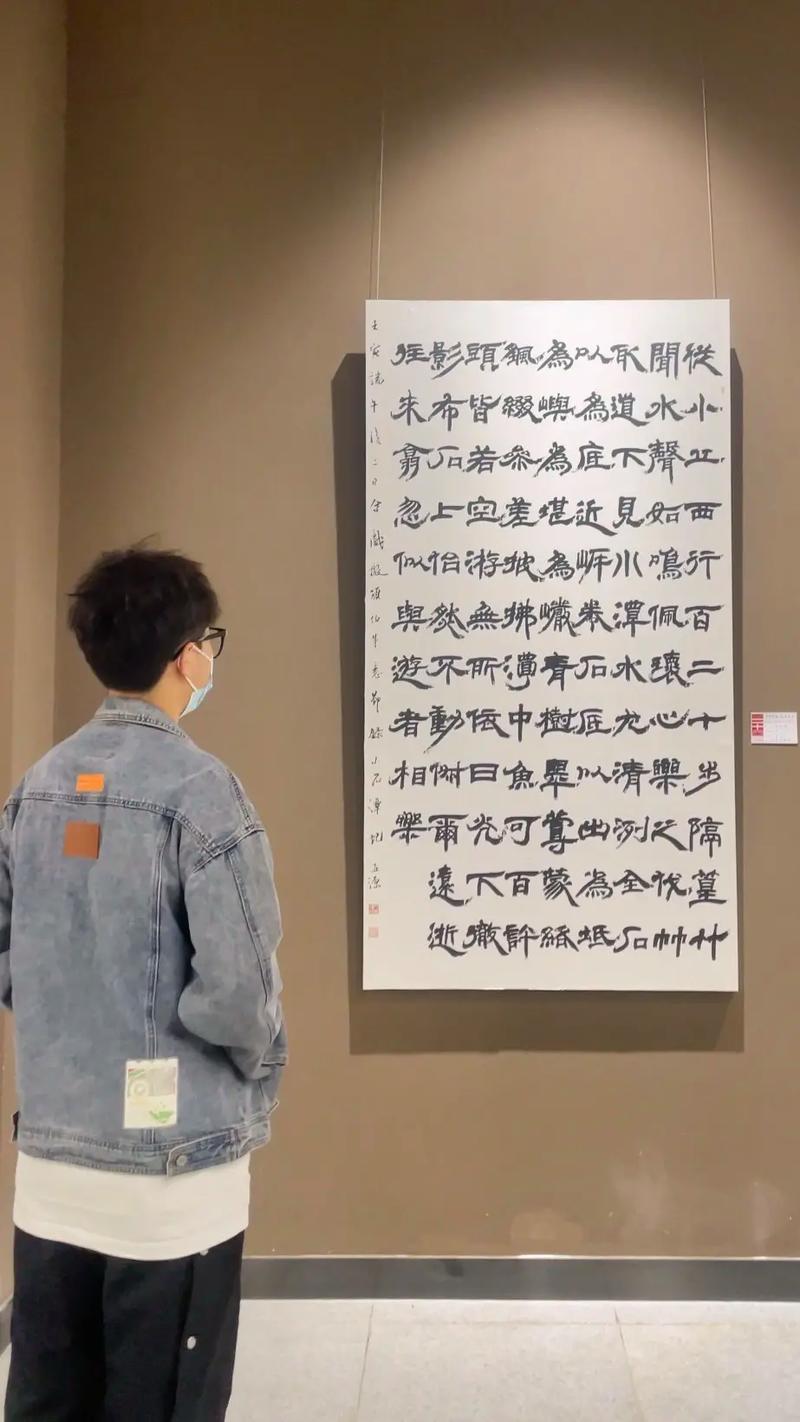 從小丘西行百二十步隔篁竹
聞水聲如鳴佩環心樂之伐竹
取道下見小潭水尤清冽全石
以為底近岸卷石底以出為坻
為嶼為堪為巖青樹翠蔓蒙絡
綴參差披拂潭中魚可百許
頭皆若空游無所依日光下徹
影布石上怡然不動俶爾遠逝
往來翕忽似與遊者相樂
壬寅端午後二日余戲擬頑伯筆意節錄小石潭記